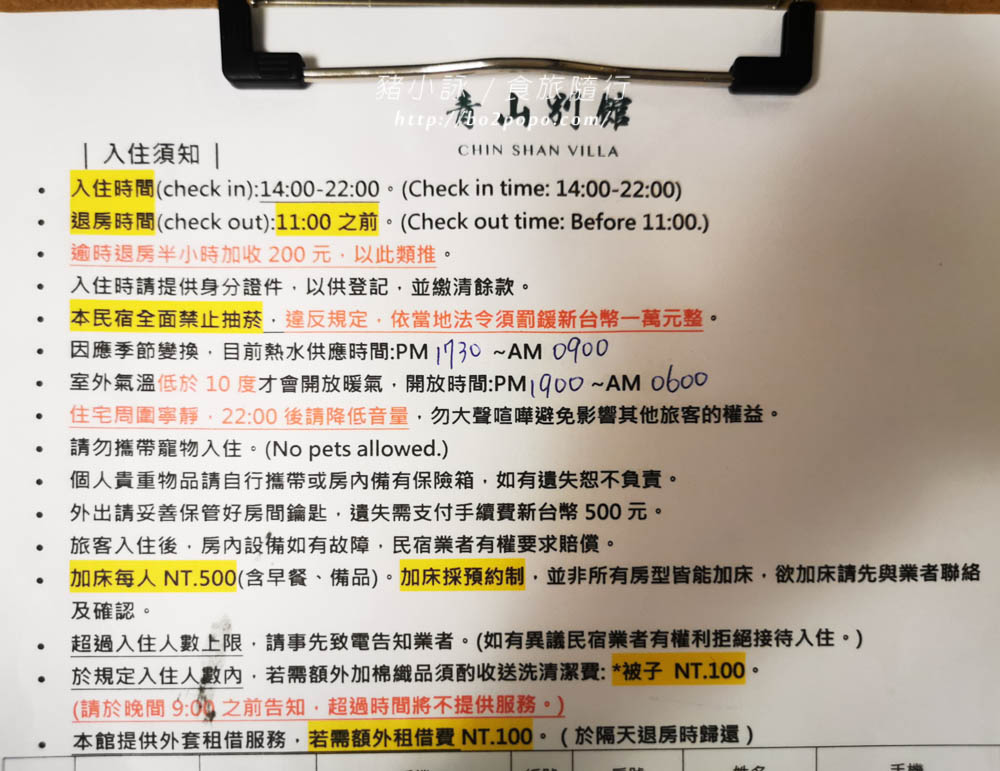 豬小詠 / 食旅隨行
青山別館
http://bo2popo.com/
CHIN SHAN VILLA
| 入住須知 |
• 入住時間(check in):14:00-22:00。(Check in time: 14:00-22:00)
• 退房時間(check out):11:00 之前。(Check out time: Before 11:00.)
• 逾時退房半小時加收 200 元，以此類推。
• 入住時請提供身分證件，以供登記，並繳清餘款。
• 本民宿全面禁止抽菸，違反規定，依當地法令須罰鍰新台幣一萬元整。
• 因應季節變換，目前熱水供應時間:PM 1730 ~AM 0900
• 室外氣溫低於 10 度才會開放暖氣，開放時間:PM 1900 ~AM 0600
• 住宅周圍寧靜，22:00 後請降低音量，勿大聲喧嘩避免影響其他旅客的權益。
• 請勿攜帶寵物入住。(No pets allowed.)
• 個人貴重物品請自行攜帶或房內備有保險箱，如有遺失恕不負責。
• 外出請妥善保管好房間鑰匙，遺失需支付手續費新台幣 500 元。
• 旅客入住後，房內設備如有故障，民宿業者有權要求賠償。
• 加床每人 NT.500(含早餐、備品)。加床採預約制，並非所有房型皆能加床，欲加床請先與業者聯絡
及確認。
• 超過入住人數上限，請事先致電告知業者。(如有異議民宿業者有權利拒絕接待入住。)
• 於規定入住人數內，若需額外加棉織品須酌收送洗清潔費: *被子 NT.100。
(請於晚間 9:00 之前告知，超過時間將不提供服務。)
• 本館提供外套租借服務，若需額外租借費 NT.100。(於隔天退房時歸還)
姓名 手機